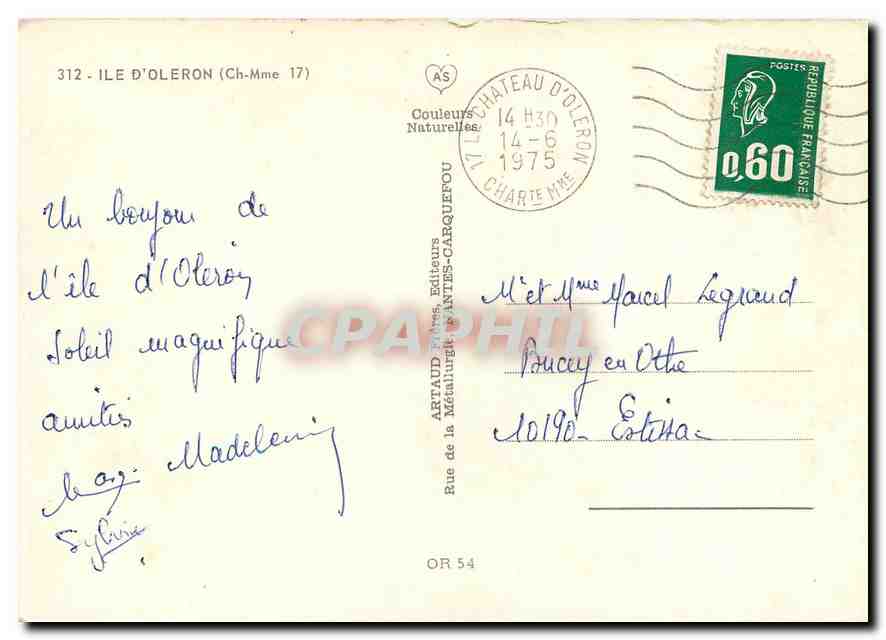 312 - ILE D'OLERON (Ch-Mme 17)
AS
Couleurs
Naturelles
17 LE CHATEAU D'OLERON
14 H30
14-6
1975
CHARTE MME
POSTES
REPUBLIQUE FRANÇAISE
0,60
Un bonjour de
l'île d'Oleron
Soleil magnifique
amitiés
Madeleine
Sylvie
ARTAUD Frères, Editeurs
Rue de la Métallurgie, NANTES-CARQUEFOU
CPAPHIL
Mr et Mme Marcel Legrand
Bucey en Othe
10190 - Estissac
OR 54